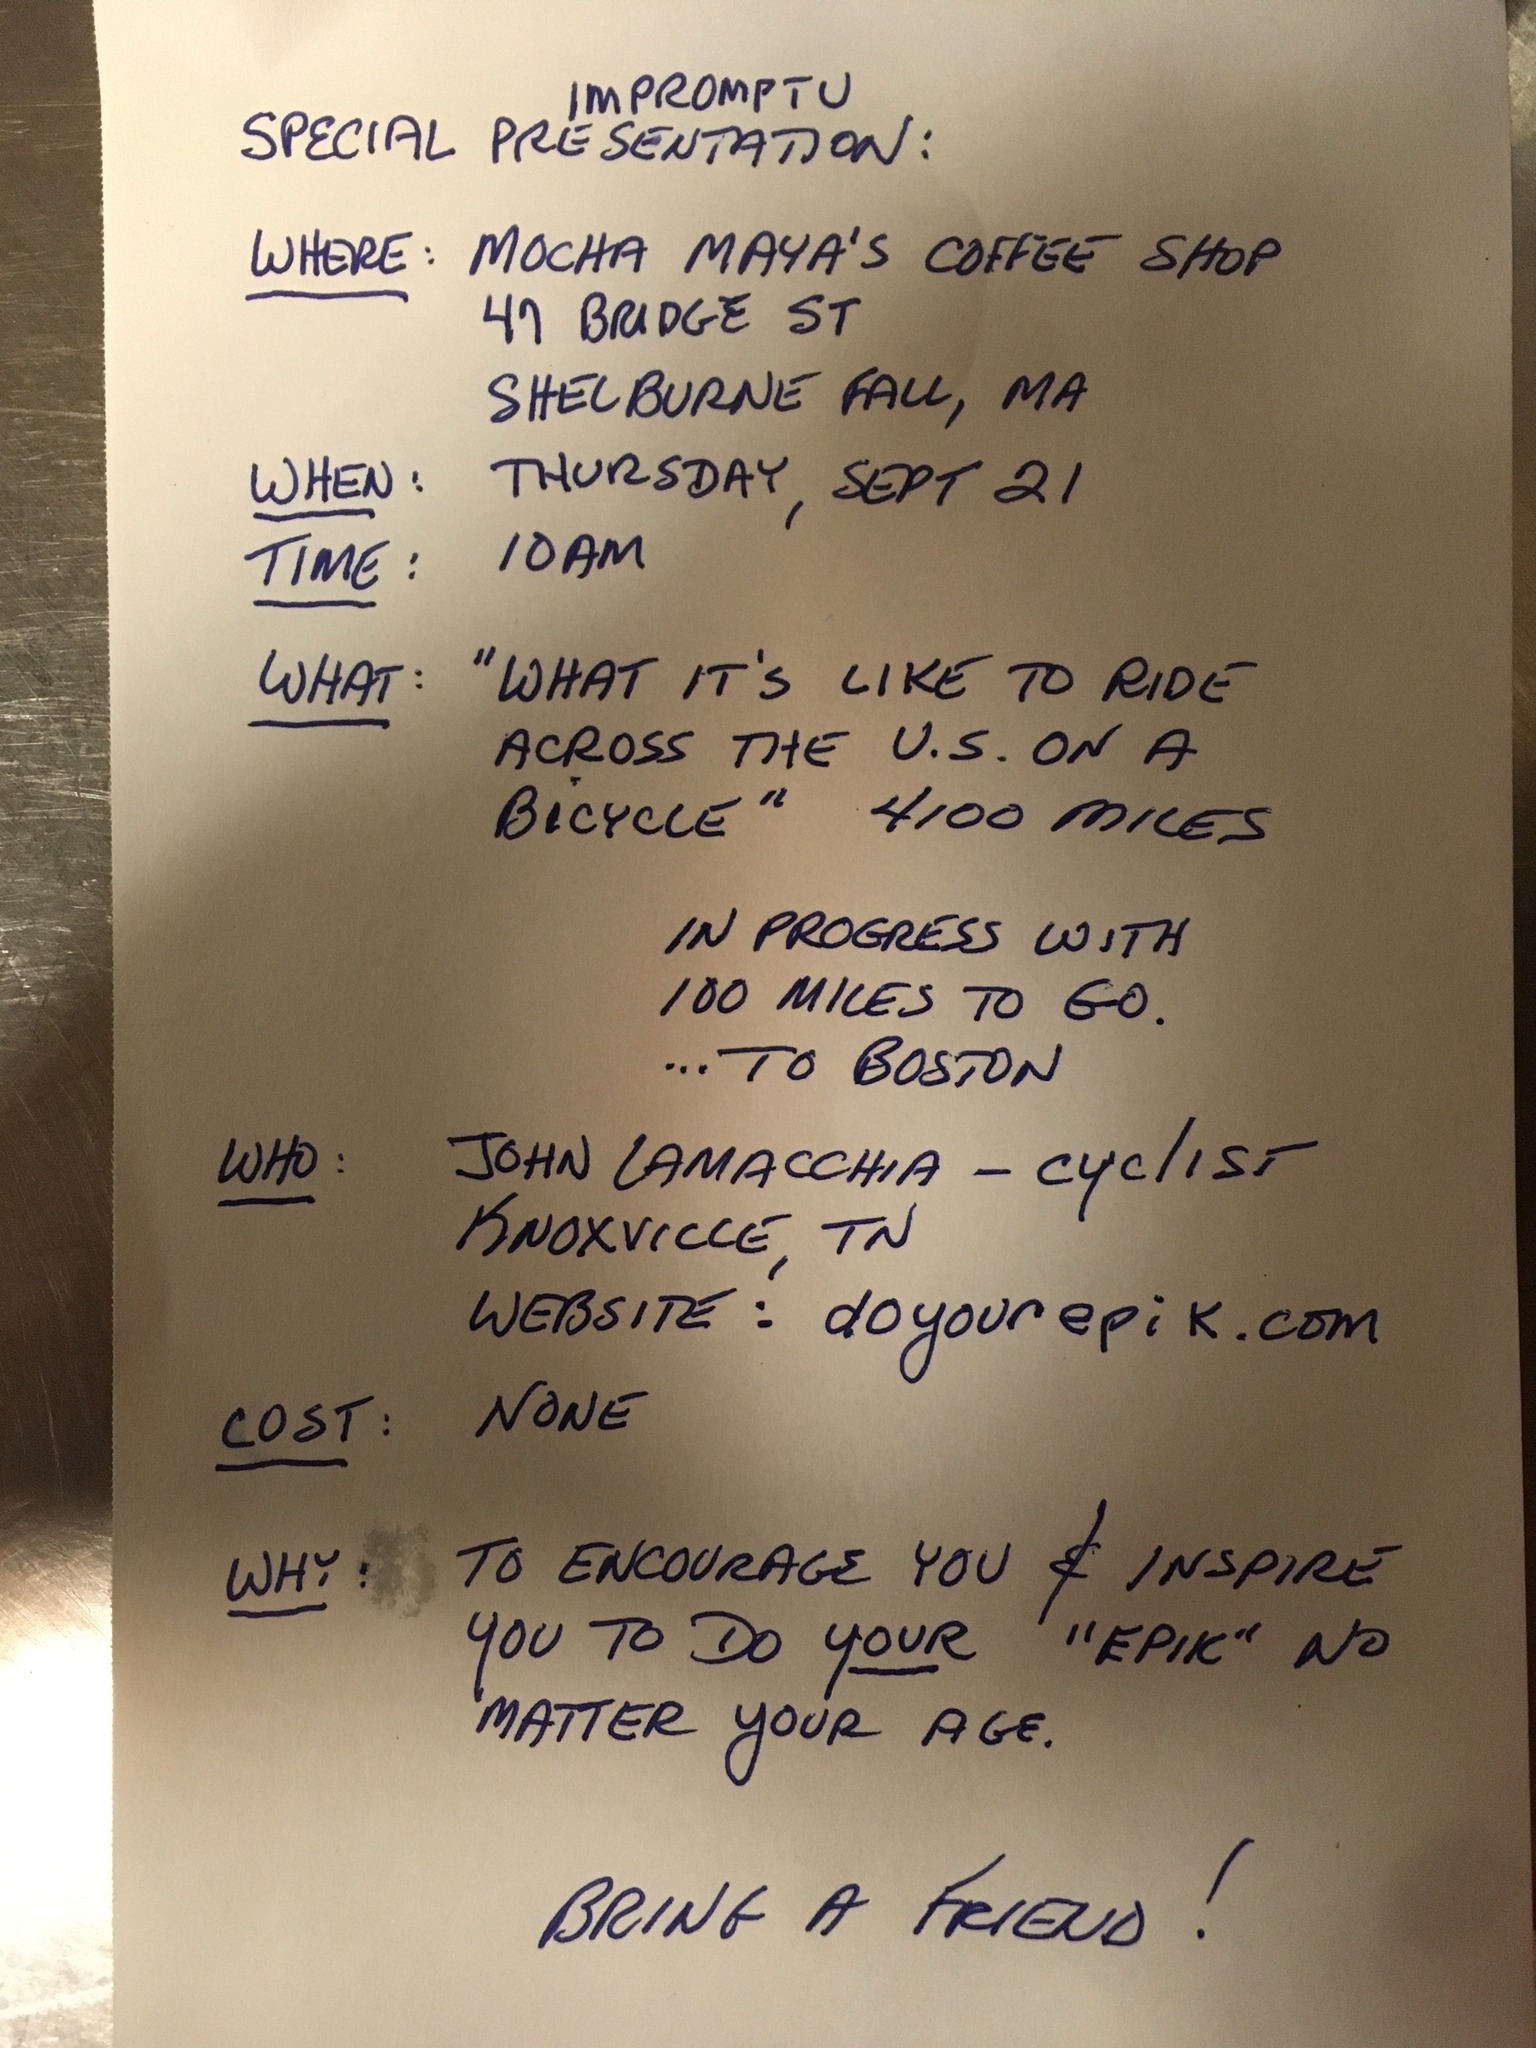 IMPROMPTU
SPECIAL PRESENTATION:
WHERE: MOCHA MAYA'S COFFEE SHOP
47 BRIDGE ST
SHELBURNE FALL, MA
WHEN: THURSDAY, SEPT 21
TIME: 10AM
WHAT: "WHAT IT'S LIKE TO RIDE
ACROSS THE U.S. ON A
BICYCLE" 4100 MILES
IN PROGRESS WITH
100 MILES TO GO.
...TO BOSTON
WHO: JOHN LAMACCHIA - CYCLIST
KNOXVILLE, TN
WEBSITE: doyourepik.com
COST: NONE
WHY: TO ENCOURAGE YOU & INSPIRE
YOU TO DO YOUR "EPIK" NO
MATTER YOUR AGE.
BRING A FRIEND!